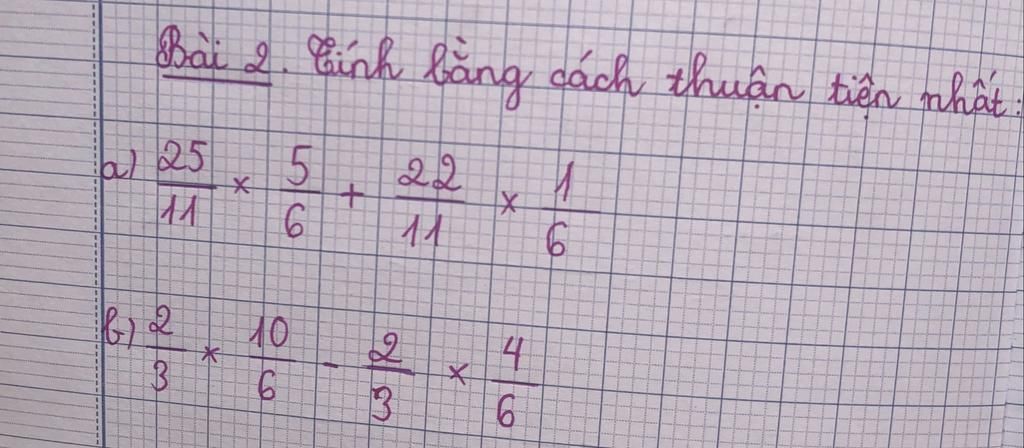 Bài 2. Tính bằng cách thuận tiện nhất:
a) 25/11 × 5/6 + 22/11 × 1/6
b) 2/3 × 10/6 - 2/3 × 4/6